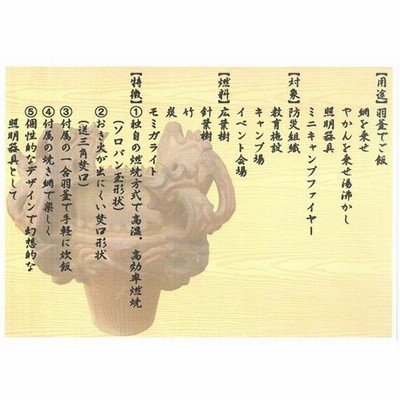 【用途】羽釜でご飯
網を乗せ
やかんを乗せ湯沸かし
照明器具
ミニキャンプファイヤー
【対象】防災組織
教育施設
キャンプ場
イベント会場
【燃料】広葉樹
針葉樹
竹
炭
モミガライト
【特徴】①独自の燃焼方式で高温、高効率燃焼
（ソロバン玉形状）
②おき火が出にくい焚口形状
（逆三角焚口）
③付属の一合羽釜で手軽に炊飯
④付属の焼き網で楽しく
⑤個性的なデザインで幻想的な
照明器具として